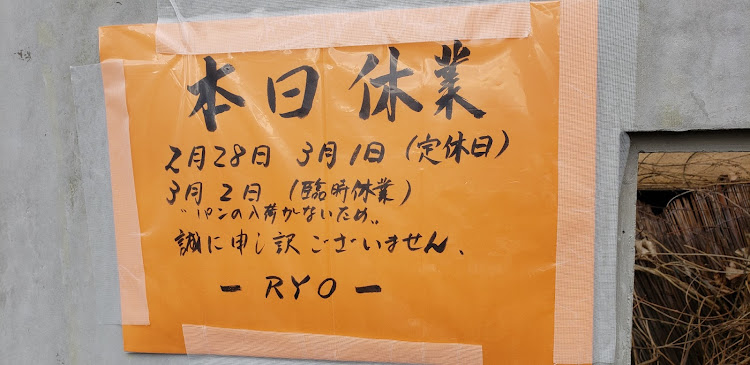 本日休業
2月28日 3月1日(定休日)
3月2日(臨時休業)
〝パンの入荷がないため〟
誠に申し訳ございません、
ー RYO ー